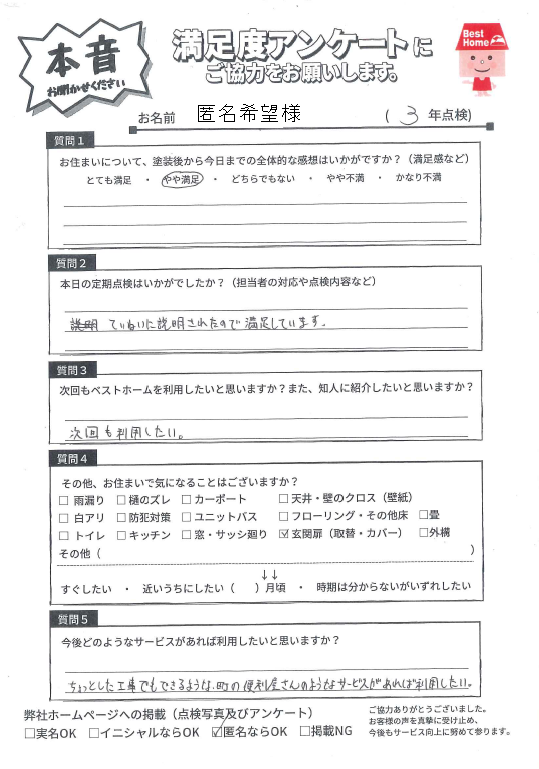 本音
お聞かせください
満足度アンケートに
ご協力をお願いします。
Best Home
お名前 匿名希望様 (3 年点検)
質問1
お住まいについて、塗装後から今日までの全体的な感想はいかがですか?(満足感など)
とても満足 ・ やや満足 ・ どちらでもない ・ やや不満 ・ かなり不満
質問2
本日の定期点検はいかがでしたか?(担当者の対応や点検内容など)
説明 ていねいに説明されたので満足しています。
質問3
次回もベストホームを利用したいと思いますか?また、知人に紹介したいと思いますか?
次回も利用したい。
質問4
その他、お住まいで気になることはございますか?
□ 雨漏り □ 樋のズレ □ カーポート □ 天井・壁のクロス(壁紙)
□ 白アリ □ 防犯対策 □ ユニットバス □ フローリング・その他床 □畳
□ トイレ □ キッチン □ 窓・サッシ廻り ☑ 玄関扉(取替・カバー) □外構
その他( )
↓↓
すぐしたい ・ 近いうちにしたい( )月頃 ・ 時期は分からないがいずれしたい
質問5
今後どのようなサービスがあれば利用したいと思いますか?
ちょっとした工事でもできるような、町の便利屋さんのようなサービスがあれば利用したい。
弊社ホームページへの掲載(点検写真及びアンケート)
□実名OK □イニシャルならOK ☑匿名ならOK □掲載NG
ご協力ありがとうございました。
お客様の声を真摯に受け止め、
今後もサービス向上に努めて参ります。